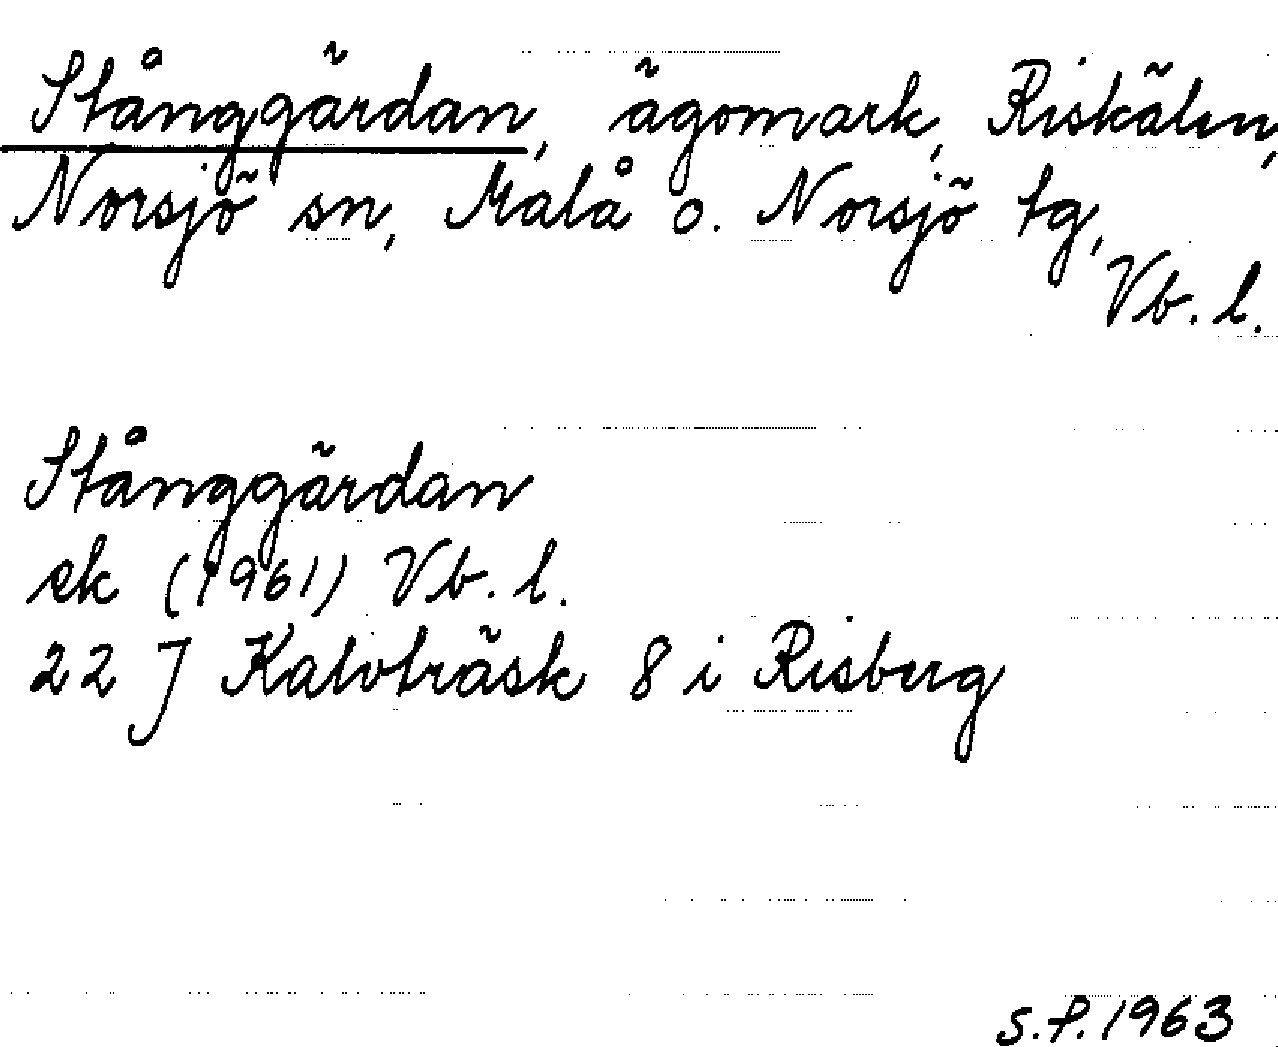 Stånggärdan, ägomark, Riskälen,
Norsjö sn, Malå o. Norsjö tg,
Vb. l.
Stånggärdan
ek (1961) Vb. l.
22 J Kalvträsk 8 i Risberg
S.P. 1963